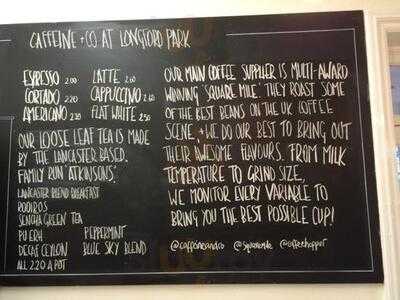 CAFFEINE + CO AT LONGFORD PARK
ESPRESSO 2.00 LATTE 2.60
CORTADO 2.20 CAPPUCCINO 2.60
AMERICANO 2.20 FLAT WHITE 2.50
OUR LOOSE LEAF TEA IS MADE
BY THE LANCASTER BASED.
FAMILY RUN 'ATKINSONS'.
LANCASTER BLEND BREAKFAST
ROOIBOS
SENCHA GREEN TEA
PU ERH PEPPERMINT
DECAF CEYLON BLUE SKY BLEND
ALL 2.20 A POT
OUR MAIN COFFEE SUPPLIER IS MULTI-AWARD
WINNING 'SQUARE MILE' THEY ROAST SOME
OF THE BEST BEANS ON THE UK COFFEE
SCENE, + WE DO OUR BEST TO BRING OUT
THEIR AWESOME FLAVOURS. FROM MILK
TEMPERATURE TO GRIND SIZE,
WE MONITOR EVERY VARIABLE TO
BRING YOU THE BEST POSSIBLE CUP!
@caffeineandco @squaremile @coffeehopper